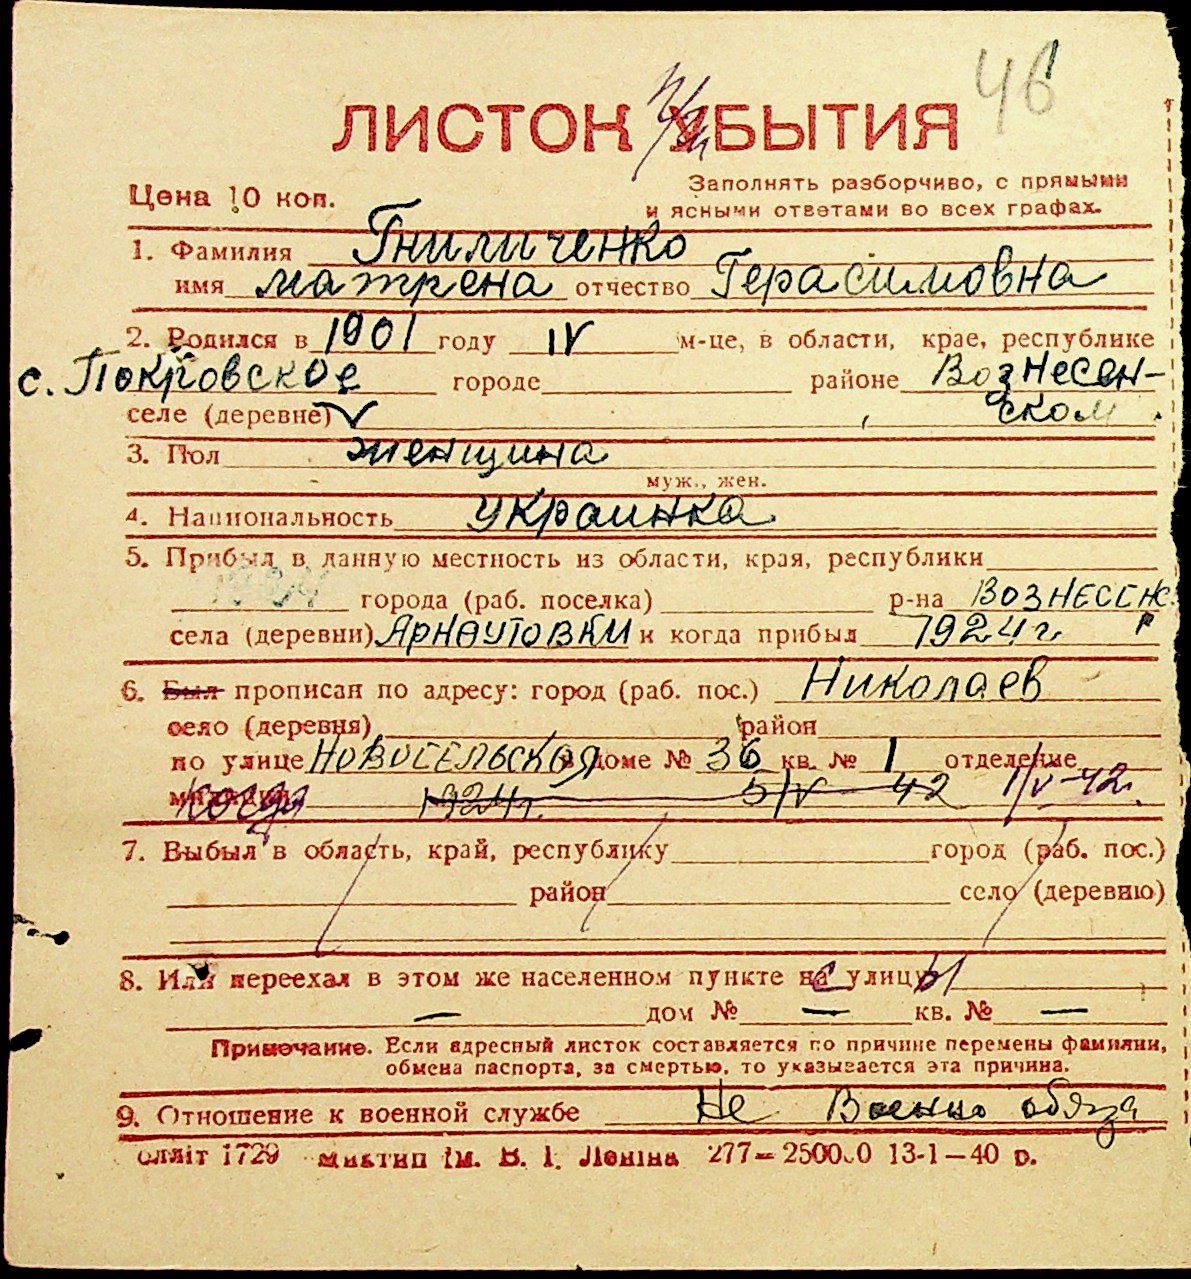 46
ЛИСТОК УБЫТИЯ
Цена 10 коп.
Заполнять разборчиво, с прямыми
и ясными ответами во всех графах.
1. Фамилия Гниличенко
имя матрена отчество Герасимовна
2. Родился в 1901 году IV м-це, в области, крае, республике
с. Покровское городе районе Вознесен-
селе (деревне) V ском.
3. Пол женщина
муж., жен.
4. Национальность украинка
5. Прибыл в данную местность из области, края, республики
города (раб. поселка) р-на Вознесенск
села (деревни) Арнаутовки и когда прибыл 1924 г.
6. Был прописан по адресу: город (раб. пос.) Николаев
село (деревня) район
по улице Новосельская в доме № 36 кв. № 1 отделение
милиции когда 1924г. 5/V 42 1/V-42.
7. Выбыл в область, край, республику город (раб. пос.)
район село (деревню)
8. Или переехал в этом же населенном пункте на улицу
— дом № — кв. № —
Примечание. Если адресный листок составляется по причине перемены фамилии,
обмена паспорта, за смертью, то указывается эта причина.
9. Отношение к военной службе Не Военно обяза
1729 Миктип ім. В. І. Леніна 277—250000 13-1—40 р.